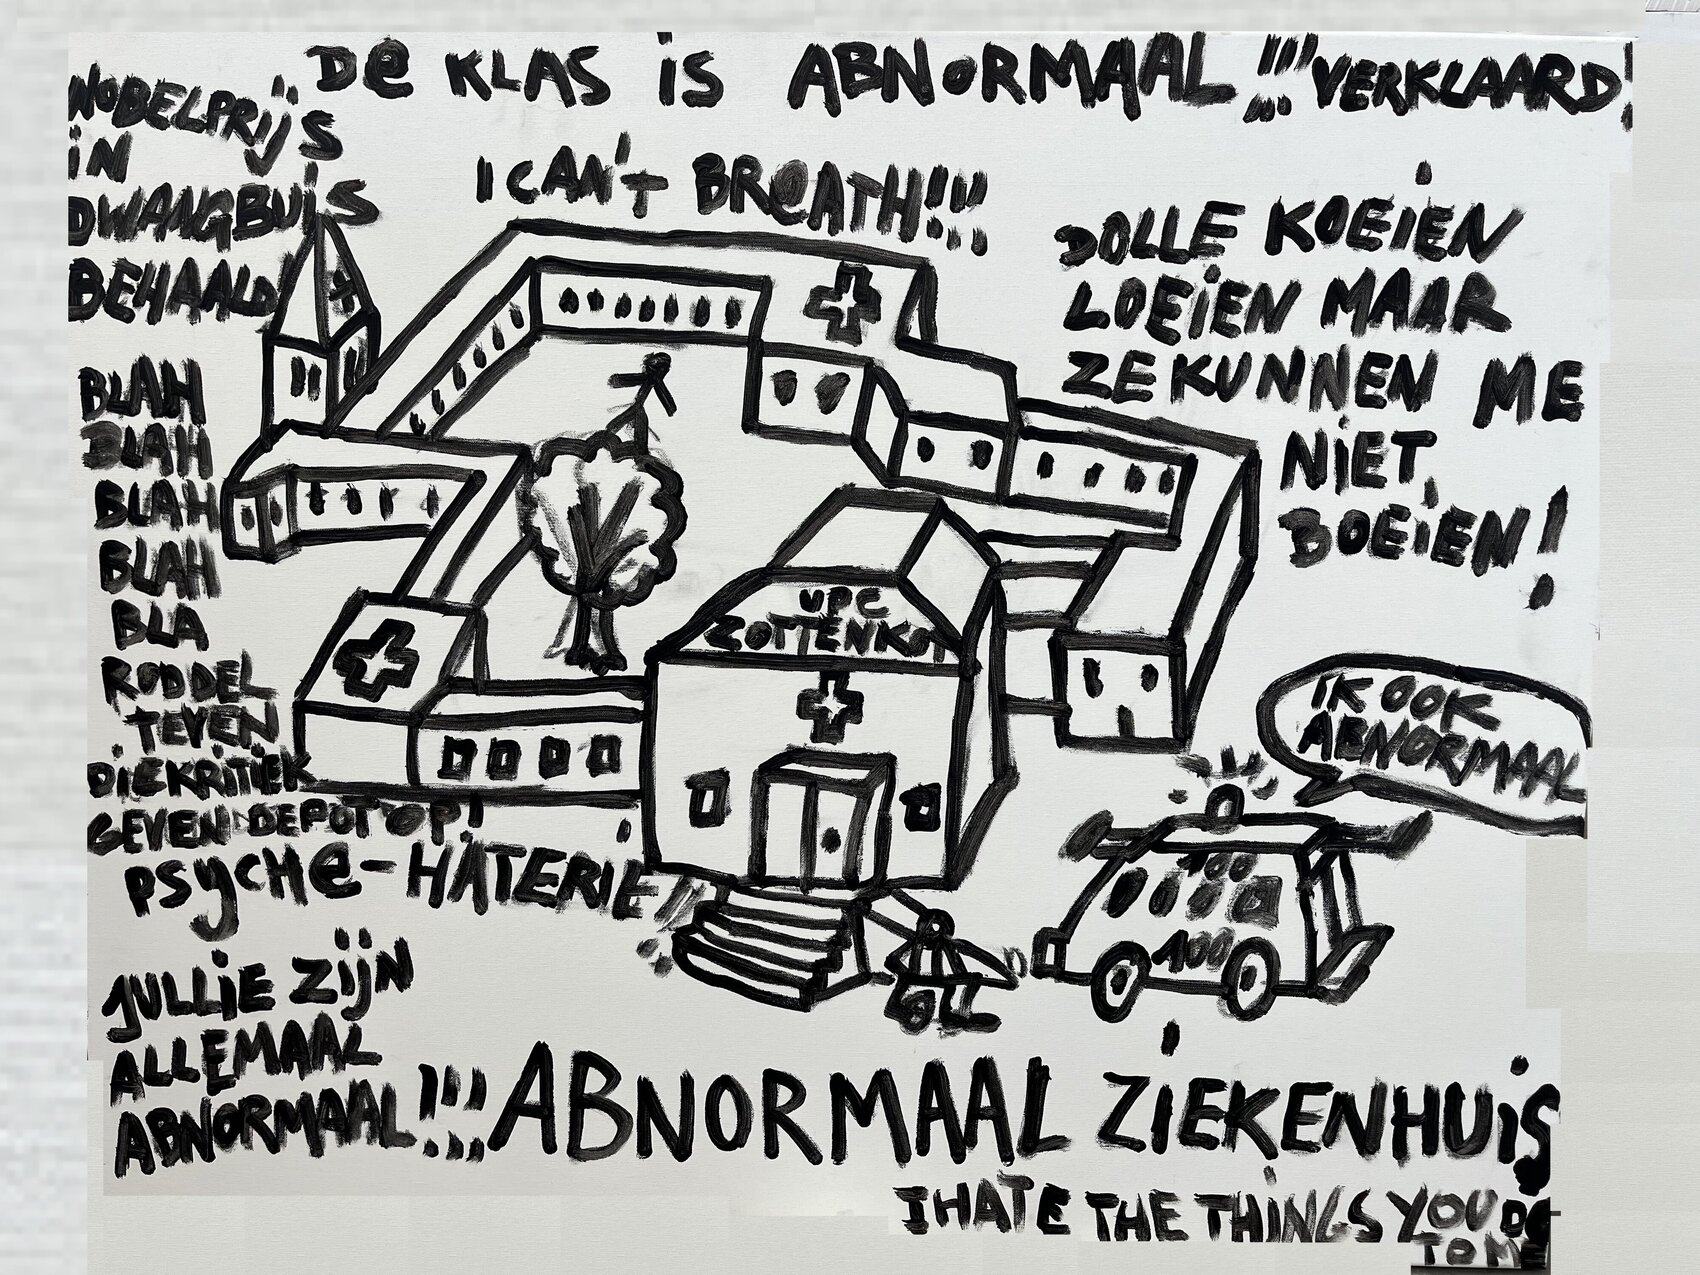 De KLAS iS ABNoRMAAL !!! VERKLAARD!
NOBELPRijS
iN
DWANGBUiS
BEHAALD!
I CAN'T BReATH!!!
DOLLE KOEiEN
LOEiEN MAAR
ZE KUNNEN ME
NiET,
BOEiEN!
BLAH
BLAH
BLAH
BLAH
BLA
RODDEL
TEVEN
DiEKRiTiEK
GEVEN DEPOT OP!
PSYCHe-HATERiE!!
UPC
ZOTTENKOT
IK OOK
ABNORMAAL
100
100
JULLiE ZijN
ALLEMAAL
ABNORMAAL!!!
ABNORMAAL ZiEKENHUiS
I HATE THE THiNGS YOU DO
TO ME